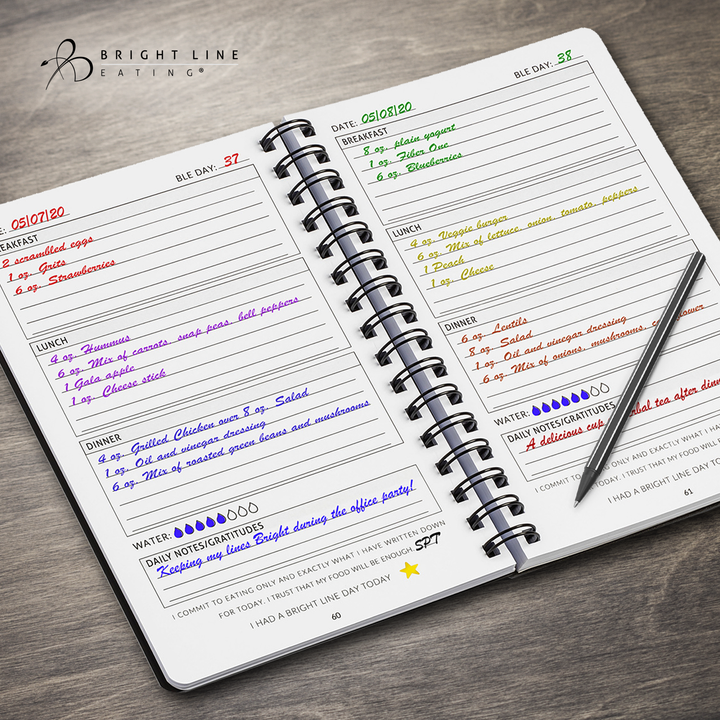 BRIGHT LINE
EATING®
BLE DAY: 37
05/07/20
2 scrambled eggs
1 oz. Grits
6 oz. Strawberries
LUNCH
4 oz. Hummus
6 oz. Mix of carrots, snap peas, bell peppers
1 Gala apple
1 oz. Cheese stick
DINNER
4 oz. Grilled Chicken over 8 oz. Salad
1 oz. Oil and vinegar dressing
6 oz. Mix of roasted green beans and mushrooms
WATER:
DAILY NOTES/GRATITUDES
Keeping my lines Bright during the office party!
I COMMIT TO EATING ONLY AND EXACTLY WHAT I HAVE WRITTEN DOWN
FOR TODAY. I TRUST THAT MY FOOD WILL BE ENOUGH. SPT
I HAD A BRIGHT LINE DAY TODAY
60
BLE DAY: 38
DATE: 05/08/20
BREAKFAST
8 oz. plain yogurt
1 oz. Fiber One
6 oz. Blueberries
LUNCH
4 oz. Veggie burger
6 oz. Mix of lettuce, onion, tomato, peppers
1 Peach
1 oz. Cheese
DINNER
6 oz. Lentils
8 oz. Salad
1 oz. Oil and vinegar dressing
6 oz. Mix of onions, mushrooms,
WATER:
DAILY NOTES/GRATITUDES
A delicious cup tea after
I COMMIT TO EATING ONLY AND EXACTLY WHAT I
TODAY. I TRUST THAT MY FOOD WILL
I HAD A BRIGHT LINE DAY TODAY
61